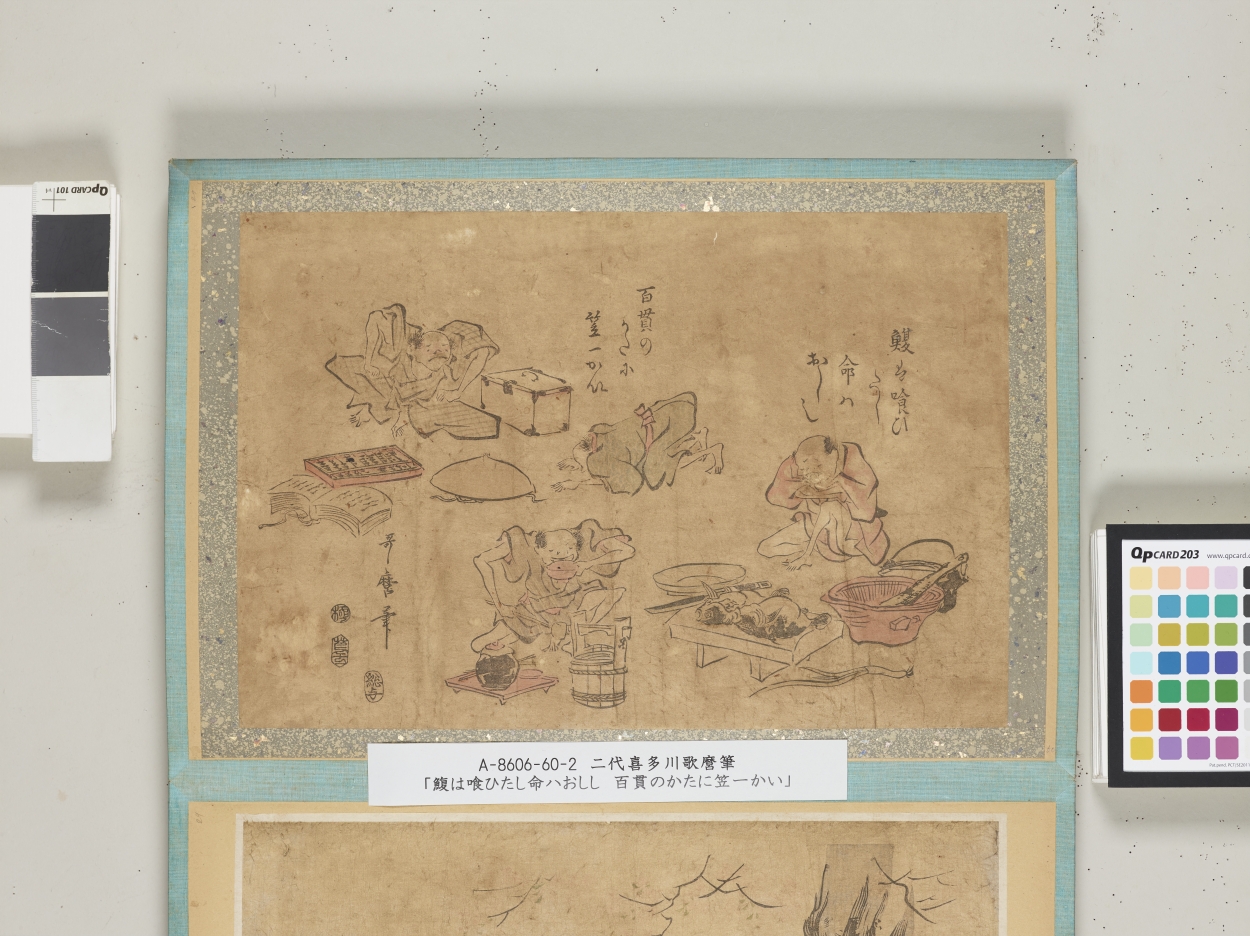 QpCARD 101 v1
百貫の
かたに
笠一かい
鰒は喰ひ
たし
命ハ
おしし
哥麿筆
QpCARD 203
www.qpcard.c
A-8606-60-2 二代喜多川歌麿筆
「鰒は喰ひたし命ハおしし 百貫のかたに笠一かい」